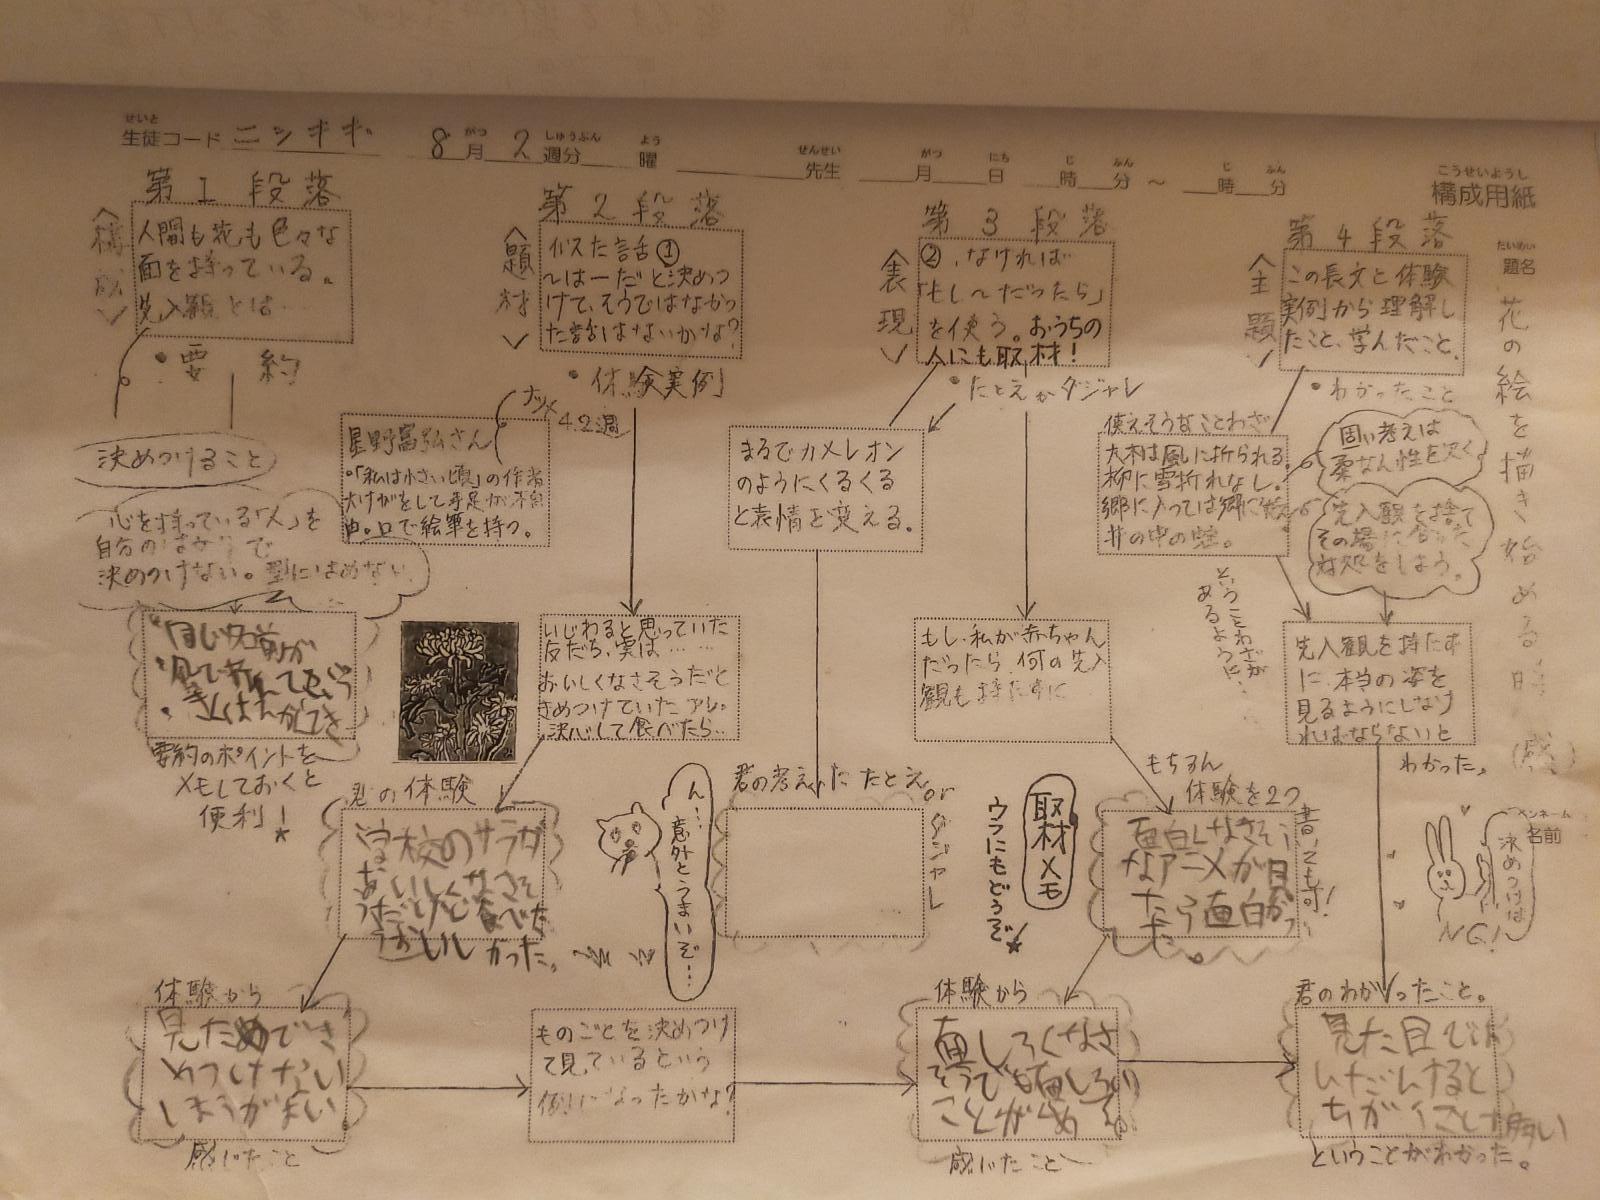 せいと
生徒コード ニシキギ
8月2週分
がつ
しゅうぶん
よう
曜
せんせい
先生
がつ にち じ ふん じ ふん
月 日 時 分 〜 時 分
こうせいようし
構成用紙
だいめい
題名
花の絵を描き始める時(感)
ペンネーム
名前
第1段落
〈構成〉
人間も花も色々な
面を持っている。
先入観とは…
・要約
決めつけること
心を持っている「人」を
自分の
決めつけない。型にはめない
同じ名前が
要約のポイントを
メモしておくと
便利!
星野富弘さん
・「私は小さい頃」の作者
大けがをして手足が不自
由。口で絵筆を持つ。
ナツメ
4.2週
第2段落
〈題材〉
似た話①
〜は―だと決めつ
けて、そうではなかっ
た話はないかな?
・体験実例
いじわると思っていた
友だち、実は……
おいしくなさそうだと
きめつけていたアレ。
決心して食べたら…
君の体験
学校のサラダ
おいしくなさそ
うだけど食べた
らおいしかった。
ん…意外とうまいぞ…
体験から
見ためできめつけない
ほうがよい
感じたこと
ものごとを決めつけ
て見ているという
例になったかな?
第3段落
〈表現〉
②、なければ
「もし〜だったら」
を使う。おうちの
人にも取材!
・たとえかダジャレ
まるでカメレオン
のようにくるくる
と表情を変える。
もし、私が赤ちゃん
だったら何の先入
観も持たずに
君の考えた たとえ
or ダジャレ
取材メモ
ウラにもどうぞ!
もちろん
体験を2つ
書いても可!
面白くなさそう
なアニメが見
たら面白かっ
た。
体験から
面しろくなさ
そうでも面しろい
ことがある
感じたこと
第4段落
〈主題〉
この長文と体験
実例から理解し
たこと、学んだこと。
・わかったこと
使えそうなことわざ
大木は風に折られる。
柳に雪折れなし。
郷に入っては郷に従
井の中の蛙。
ということわざが
あるように…
固い考えは
柔なん性を欠く
先入観を捨て
その場に合った
対処をしよう。
先入観を持たず
に、本当の姿を
見るようにしなけ
ればならないと
わかった。
決めつけは
NG!
君のわかったこと。
見た目では
んだんすると
ちがうことが多い
ということがわかった。